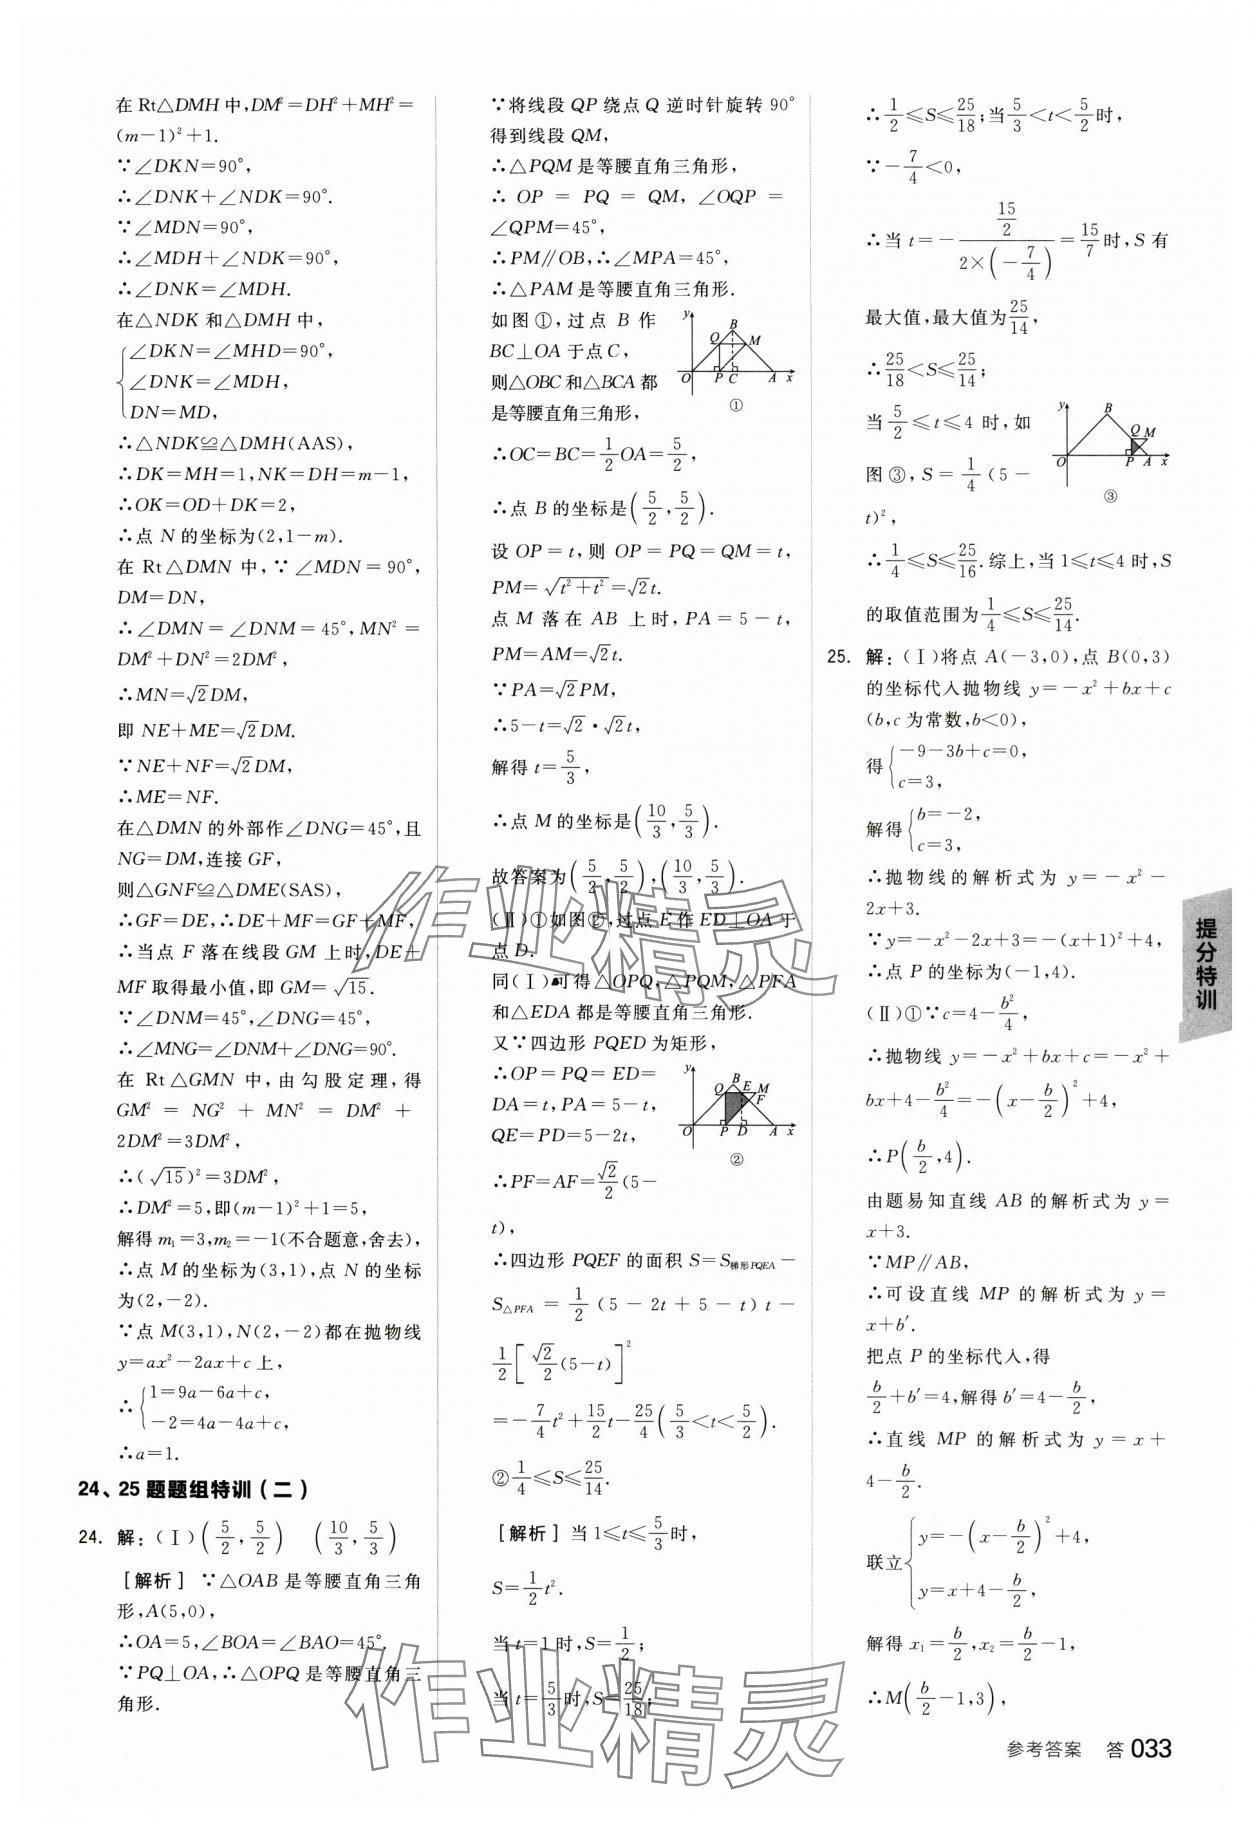 在 Rt△DMH 中,DM²=DH²+MH²=
(m-1)²+1.
∵∠DKN=90°,
∴∠DNK+∠NDK=90°.
∵∠MDN=90°,
∴∠MDH+∠NDK=90°,
∴∠DNK=∠MDH.
在△NDK 和△DMH 中,
{∠DKN=∠MHD=90°,
∠DNK=∠MDH,
DN=MD,
∴△NDK≌△DMH(AAS),
∴DK=MH=1,NK=DH=m-1,
∴OK=OD+DK=2,
∴点 N 的坐标为(2,1-m).
在 Rt△DMN 中,∵∠MDN=90°,
DM=DN,
∴∠DMN=∠DNM=45°,MN²=
DM²+DN²=2DM²,
∴MN=√2DM,
即 NE+ME=√2DM.
∵NE+NF=√2DM,
∴ME=NF.
在△DMN 的外部作∠DNG=45°,且
NG=DM,连接 GF,
则△GNF≌△DME(SAS),
∴GF=DE,∴DE+MF=GF+MF,
∴当点 F 落在线段 GM 上时,DE+
MF 取得最小值,即 GM=√15.
∵∠DNM=45°,∠DNG=45°,
∴∠MNG=∠DNM+∠DNG=90°.
在 Rt△GMN 中,由勾股定理,得
GM²=NG²+MN²=DM²+
2DM²=3DM²,
∴(√15)²=3DM²,
∴DM²=5,即(m-1)²+1=5,
解得 m₁=3,m₂=-1(不合题意,舍去),
∴点 M 的坐标为(3,1),点 N 的坐标
为(2,-2).
∵点 M(3,1),N(2,-2)都在抛物线
y=ax²-2ax+c 上,
∴{1=9a-6a+c,
-2=4a-4a+c,
∴a=1.
24、25 题题组特训(二)
24. 解:(Ⅰ)(5/2,5/2) (10/3,5/3)
[解析] ∵△OAB 是等腰直角三角
形,A(5,0),
∴OA=5,∠BOA=∠BAO=45°.
∵PQ⊥OA,∴△OPQ 是等腰直角三
角形.
∵将线段 QP 绕点 Q 逆时针旋转 90°
得到线段 QM,
∴△PQM 是等腰直角三角形,
∴OP=PQ=QM,∠OQP=
∠QPM=45°,
∴PM∥OB,∴∠MPA=45°,
∴△PAM 是等腰直角三角形.
如图①,过点 B 作
BC⊥OA 于点 C,
则△OBC 和△BCA 都
是等腰直角三角形,
y B Q M O P C A x
①
∴OC=BC=1/2OA=5/2,
∴点 B 的坐标是(5/2,5/2).
设 OP=t,则 OP=PQ=QM=t,
PM=√(t²+t²)=√2t.
点 M 落在 AB 上时,PA=5-t,
PM=AM=√2t.
∵PA=√2PM,
∴5-t=√2·√2t,
解得 t=5/3,
∴点 M 的坐标是(10/3,5/3).
故答案为(5/2,5/2),(10/3,5/3).
(Ⅱ)①如图②,过点 E 作 ED⊥OA 于
点 D.
同(Ⅰ)可得△OPQ,△PQM,△PFA
和△EDA 都是等腰直角三角形.
又∵四边形 PQED 为矩形,
∴OP=PQ=ED=
DA=t,PA=5-t,
QE=PD=5-2t,
y Q B E M F O P D A x
②
∴PF=AF=√2/2(5-
t),
∴四边形 PQEF 的面积 S=S梯形PQEA-
S△PFA=1/2(5-2t+5-t)t-
1/2[√2/2(5-t)]²
=-7/4t²+15/2t-25/4(5/3<t<5/2).
②1/4≤S≤25/14.
[解析] 当 1≤t≤5/3时,
S=1/2t².
当 t=1 时,S=1/2;
当 t=5/3时,S=25/18;
∴1/2≤S≤25/18;当5/3<t<5/2时,
∵-7/4<0,
∴当 t=-(15/2)/(2×(-7/4))=15/7时,S 有
最大值,最大值为25/14,
∴25/18<S≤25/14;
当5/2≤t≤4 时,如
图③,S=1/4(5-
t)²,
y B Q M O P A x
③
∴1/4≤S≤25/16.综上,当 1≤t≤4 时,S
的取值范围为1/4≤S≤25/14.
25. 解:(Ⅰ)将点 A(-3,0),点 B(0,3)
的坐标代入抛物线 y=-x²+bx+c
(b,c 为常数,b<0),
得{-9-3b+c=0,
c=3,
解得{b=-2,
c=3,
∴抛物线的解析式为 y=-x²-
2x+3.
∵y=-x²-2x+3=-(x+1)²+4,
∴点 P 的坐标为(-1,4).
(Ⅱ)①∵c=4-b²/4,
∴抛物线 y=-x²+bx+c=-x²+
bx+4-b²/4=-(x-b/2)²+4,
∴P(b/2,4).
由题易知直线 AB 的解析式为 y=
x+3.
∵MP∥AB,
∴可设直线 MP 的解析式为 y=
x+b′.
把点 P 的坐标代入,得
b/2+b′=4,解得 b′=4-b/2,
∴直线 MP 的解析式为 y=x+
4-b/2.
联立{y=-(x-b/2)²+4,
y=x+4-b/2,
解得 x₁=b/2,x₂=b/2-1,
∴M(b/2-1,3),
提分特训
作业精灵
作业精灵
参考答案 答 033